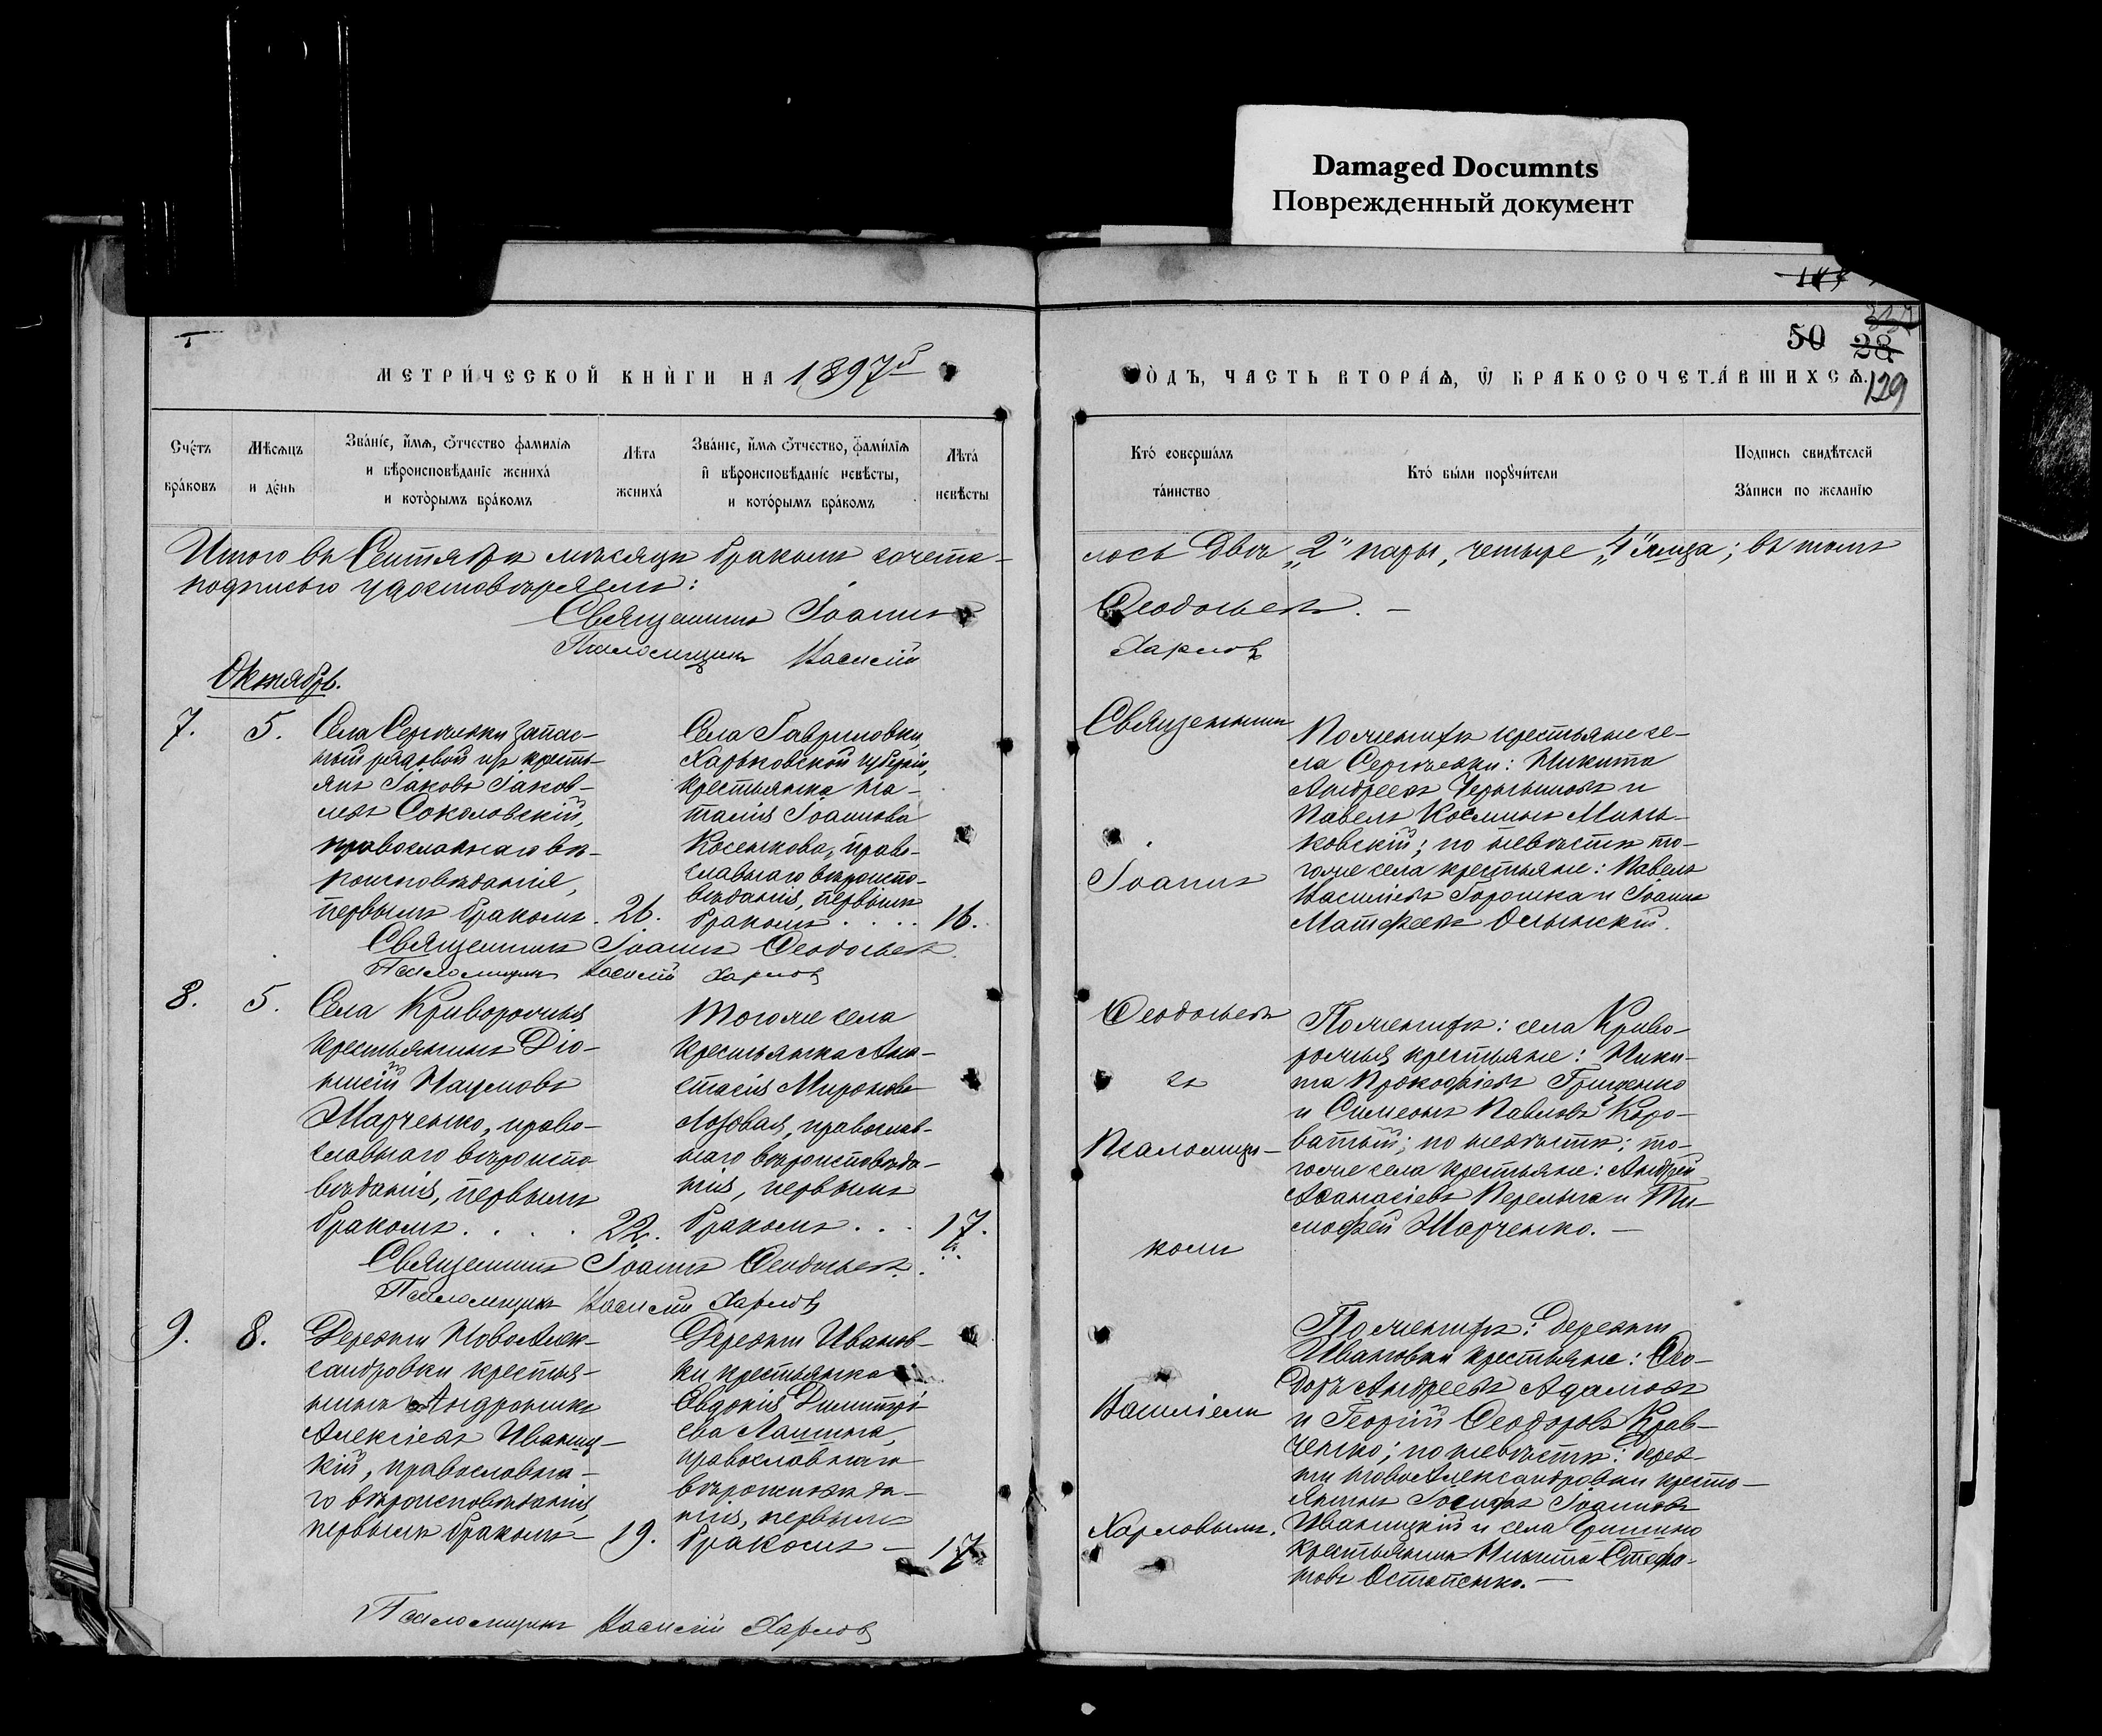 Damaged Documnts
Поврежденный документ
50 28
129
МЕТРИ́ЧЕСКОЙ КНИ́ГИ НА 1897й
ГО́ДЪ, ЧАСТЬ ВТОРА́Ѧ, Ѿ БРАКОСОЧЕТА́ВШИХСѦ.
Сче́тъ бра́ковъ
Мѣ́сѧцъ и де́нь
Зва́нїе, и́мѧ, ѻ́тчество фамилїѧ и вѣроисповѣ́данїе жениха́ и кото́рымъ бра́комъ
Лѣ́та жениха́
Зва́нїе, и́мѧ ѻ́тчество, фами́лїѧ и҆ вѣроисповѣ́данїе невѣ́сты, и кото́рымъ бра́комъ
Лѣ́та невѣ́сты
Кто́ соверша́лъ та́инство
Кто́ бы́ли порꙋчи́тели
Подпись свидѣ́телей За́писи по жела́нїю
Итого въ Сентябрѣ мѣсяцѣ бракомъ сочета-
лось двѣ „2" пары, четыре „4" лица; въ томъ
подписью удостовѣряемъ:
Священникъ Іоаннъ Ѳеодосьевъ. —
Псаломщикъ Василій Харловъ
Октябрь.
7. 5.
Села Сергѣевки запас-
ный рядовой изъ кресть-
янъ Іаковъ Іаков-
левъ Соколовскій,
православнаго вѣ-
роисповѣданія,
первымъ бракомъ. 26.
Села Гавриловки,
Харьковской губерніи,
крестьянка На-
талія Іоаннова
Косенкова, право-
славнаго вѣроиспо-
вѣданія, первымъ
бракомъ . . . . 16.
Священникъ
Іоаннъ
По женихѣ крестьяне се-
ла Сергѣевки: Никита
Андреевъ Чернышовъ и
Павелъ Косминъ Минь-
ковскій; по невѣстѣ то-
гоже села крестьяне: Павелъ
Василіевъ Горошка и Іоаннъ
Матѳеевъ Ольынскій.
Священникъ Іоаннъ Ѳеодосьевъ.
Псаломщикъ Василій Харловъ
8. 5.
Села Криворожья
крестьянинъ Діо-
нисій Наумовъ
Марченко, право-
славнаго вѣроиспо-
вѣданія, первымъ
бракомъ. . . . 22.
Тогоже села
крестьянка Ана-
стасія Миронова
Лозовая, православ-
наго вѣроисповѣда-
нія, первымъ
бракомъ . . . 17.
Ѳеодосьевъ
съ
Псаломщи-
комъ
По женихѣ: села Криво-
рожья крестьяне: Ники-
та Прокофіевъ Гриценко
и Симеонъ Павловъ Коро-
ватый; по невѣстѣ: то-
гоже села крестьяне: Андрей
Аѳанасіевъ Перелыга и Ти-
моѳей Марченко. —
Священникъ Іоаннъ Ѳеодосьевъ.
Псаломщикъ Василій Харловъ
9. 8.
Деревни НовоАлек-
сандровки крестья-
нинъ Андроникъ
Алексіевъ Иваниц-
кій, православна-
го вѣроисповѣданія,
первымъ бракомъ — 19.
Деревни Иванов-
ки крестьянка
Евдокія Димитрі-
ева Лашина,
православнаго
вѣроисповѣда-
нія, первымъ
бракомъ — 17
Василіемъ
Харловымъ.
По женихѣ: деревни
Ивановки крестьяне: Ѳео-
доръ Андреевъ Адамовъ
и Георгій Ѳеодоровъ Крав-
ченко; по невѣстѣ: дерев-
ни НовоАлександровки кресть-
янинъ Іосифъ Іоанновъ
Иваницкій и села Гришино
крестьянинъ Никита Стефа-
новъ Остапенко. —
Псаломщикъ Василій Харловъ